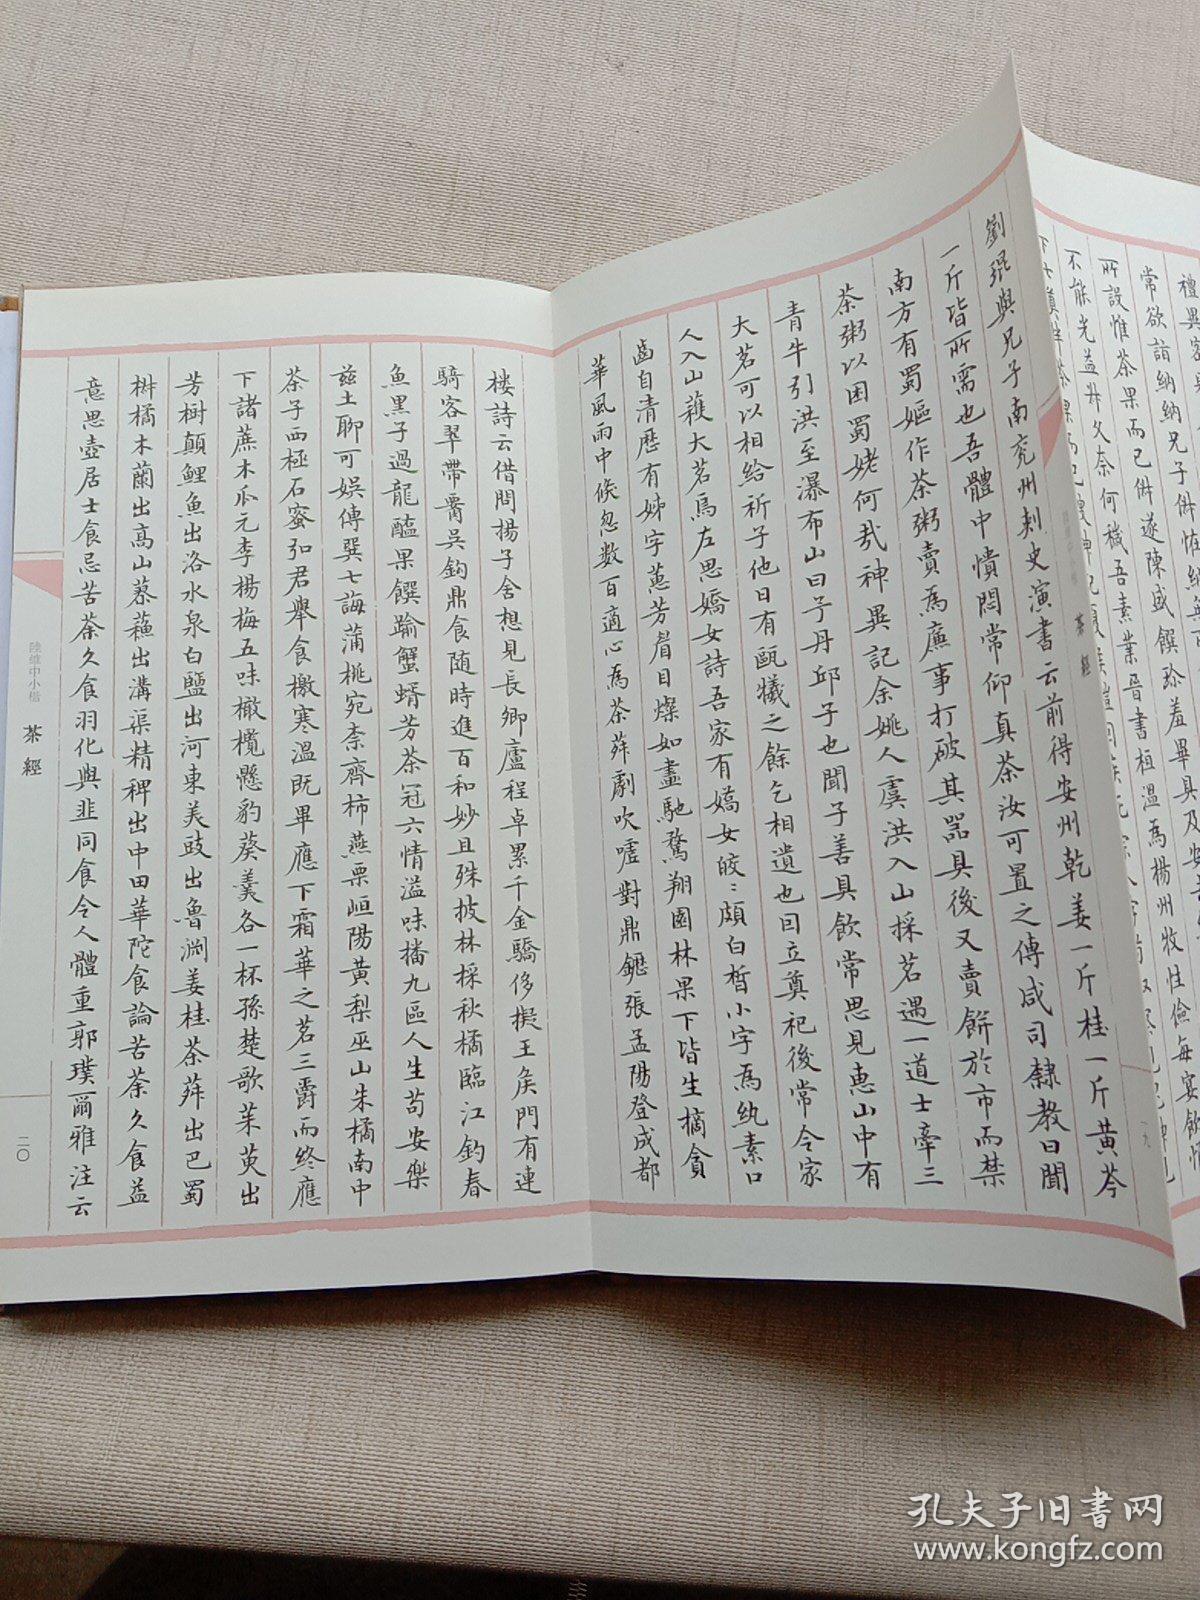 常欲詣納納兄子俶怪納無
所設惟茶果而已俶遂陳盛饌珍羞畢具及安
不能光益叔父奈何穢吾素業晉書桓溫為楊州牧性儉每宴飲惟
劉琨與兄子南兗州刺史演書云前得安州乾姜一斤桂一斤黃芩
一斤皆所需也吾體中憒悶常仰真茶汝可置之傅咸司隸教曰聞
南方有蜀嫗作茶粥賣為廉事打破其器具後又賣餅於市而禁
茶粥以困蜀姥何哉神異記余姚人虞洪入山採茗遇一道士牽三
青牛引洪至瀑布山曰予丹邱子也聞子善具飲常思見惠山中有
大茗可以相給祈子他日有甌犧之餘乞相遺也因立奠祀後常令家
人入山獲大茗焉左思嬌女詩吾家有嬌女皎皎頗白皙小字為紈素口
齒自清歷有姊字蕙芳眉目燦如畫馳騖翔園林果下皆生摘貪
華風雨中倏忽數百適心為茶荈劇吹噓對鼎䥶張孟陽登成都
樓詩云借問揚子舍想見長卿廬程卓累千金驕侈擬王侯門有連
騎客翠帶腰吳鉤鼎食隨時進百和妙且殊披林採秋橘臨江釣春
魚黑子過龍醢果饌踰蟹蝑芳茶冠六情溢味播九區人生苟安樂
茲土聊可娛傅巽七誨蒲桃宛柰齊柿燕栗峘陽黃梨巫山朱橘南中
茶子西極石蜜弘君舉食檄寒溫既畢應下霜華之茗三爵而終應
下諸蔗木瓜元李楊梅五味橄欖懸豹葵羹各一杯孫楚歌茱萸出
芳樹顛鯉魚出洛水泉白鹽出河東美豉出魯淵姜桂茶荈出巴蜀
椒橘木蘭出高山蓼蘇出溝渠精稗出中田華陀食論苦茶久食益
意思壺居士食忌苦茶久食羽化與韭同食令人體重郭璞爾雅注云
陸維中小楷 茶經
二〇
茶經
一九
孔夫子旧书网
www.kongfz.com